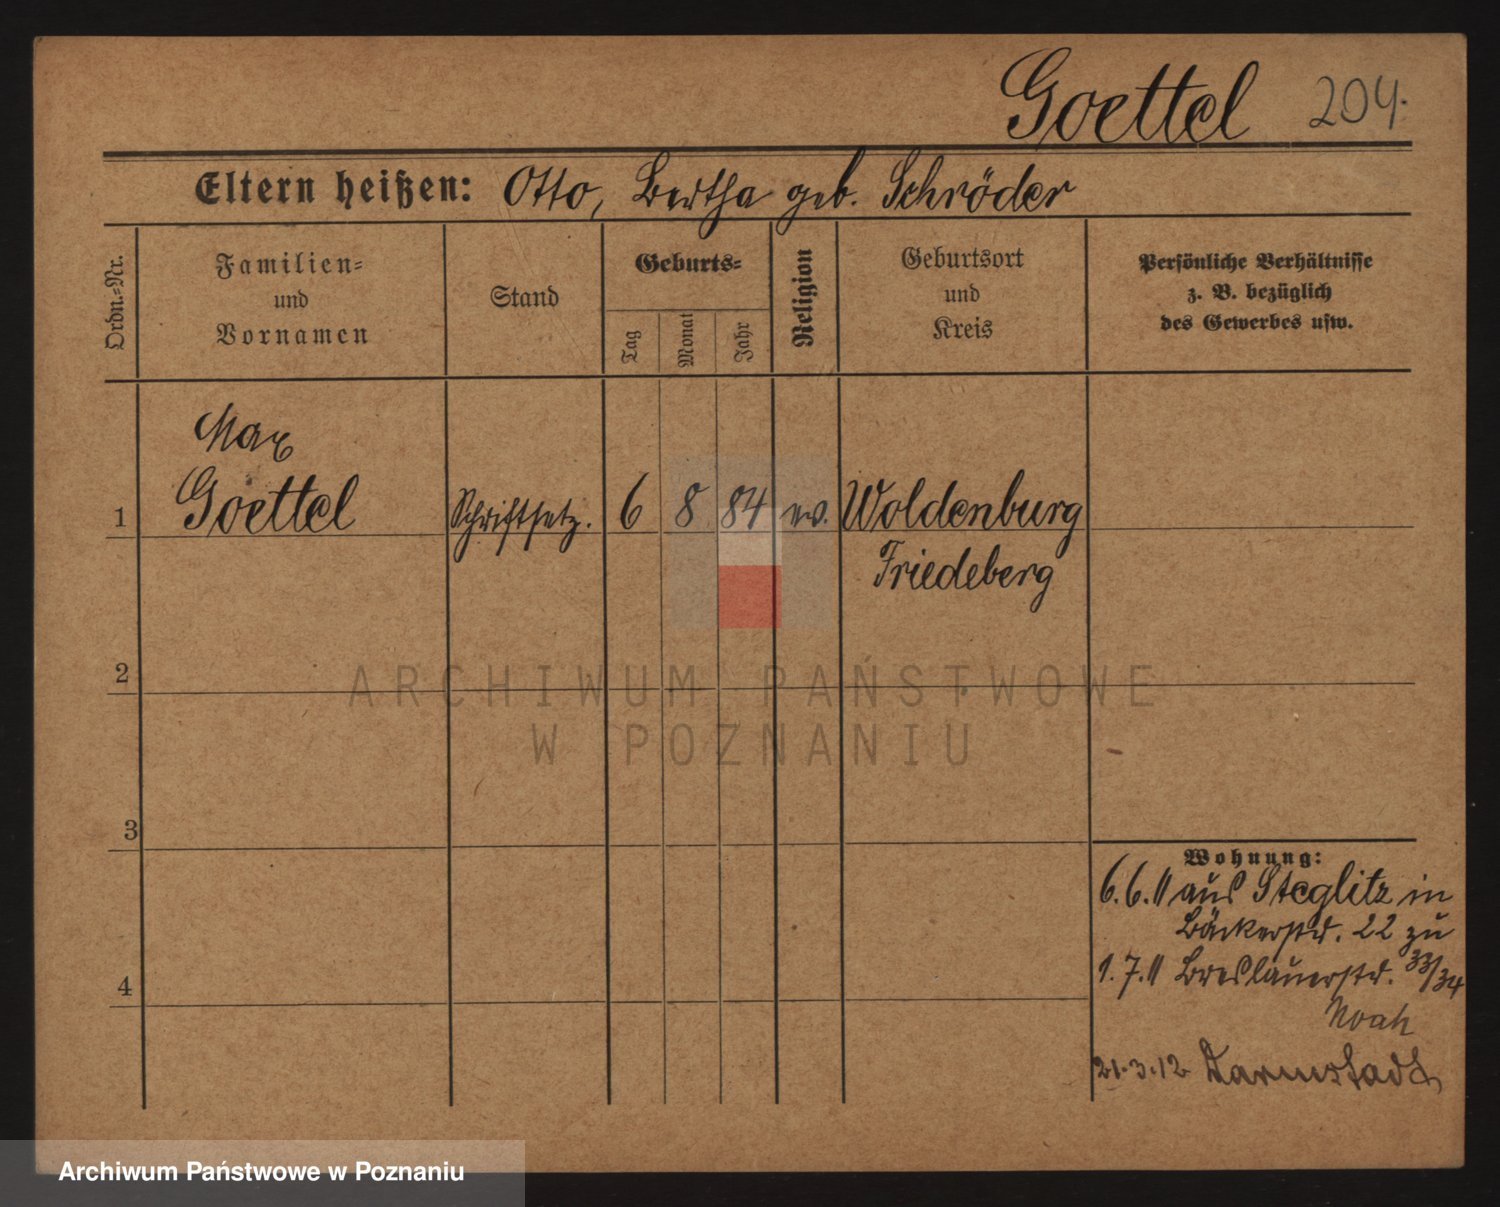 Goettel 204.
Eltern heißen: Otto, Bertha geb. Schröder
Ordn.=Nr.
Familien=
und
Vornamen
Stand
Geburts=
Tag
Monat
Jahr
Religion
Geburtsort
und
Kreis
Persönliche Verhältnisse
z. B. bezüglich
des Gewerbes usw.
Max
1 Goettel Schriftsetz. 6 8 84 ev. Woldenburg
Friedeberg
2
ARCHIWUM PAŃSTWOWE
W POZNANIU
3
Wohnung:
6.6.11 aus Steglitz in
Bäckerstr. 22 zu
1.7.11 Breslauerstr. 33/34
4
Noak
21.3.12 Darmstadt
Archiwum Państwowe w Poznaniu